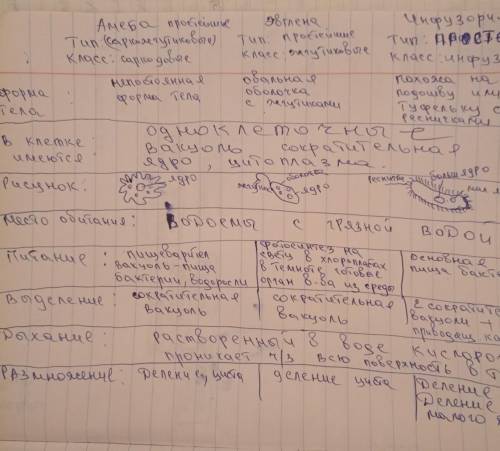 Амеба простейшие Эвглена Инфузори
Тип: (саркожгутиковые) Тип: простейшие Тип: ПРОСТЕ
Класс: саркодовые класс: жгутиковые Класс: инфуз
форма тела непостоянная форма тела овальная оболочка с жгутиками похожа на подошву или туфельку с ресничками
В клетке имеются: одноклеточные
вакуоль сократительная
ядро, цитоплазма.
Рисунок: ядро жгутик оболочка ядро реснички больш ядро мал.
Место обитания: ВОДОЕМЫ С ГРЯЗНОЙ ВОДОЙ
Питание: пищеварител вакуоль - пища бактерии, водоросли
фотосинтез на свету в хлоропластах в темноте готовые орган в-ва из среды
основная пища бакт
Выделение: сократительная вакуоль сократительная вакуоль 2 сократите вакуоли - приводящ ка
Дыхание: растворенный в воде кислоро
проникает ч/з всю поверхность т
Размножение: Деление, цита деление цита Деление
Деление
малого я